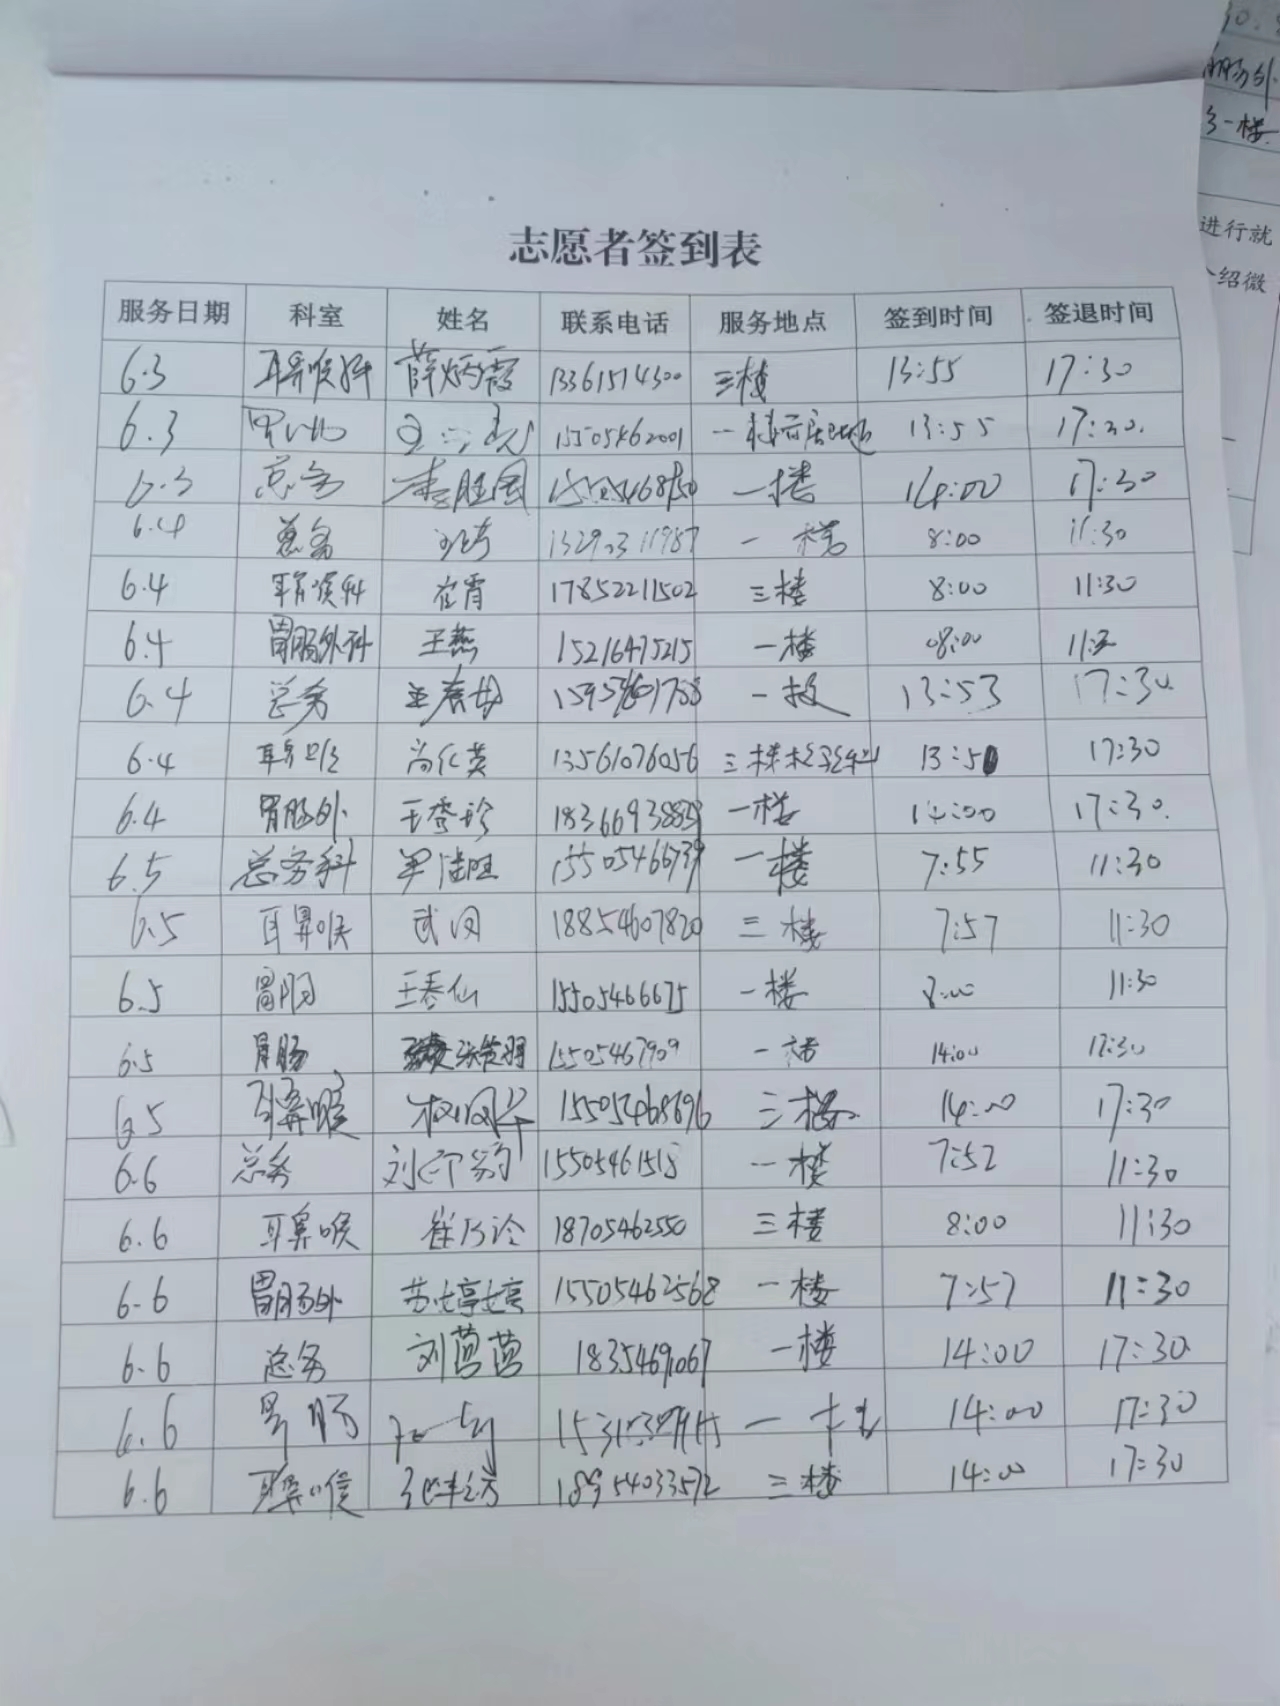 志愿者签到表
服务日期 科室 姓名 联系电话 服务地点 签到时间 签退时间
6.3 耳鼻喉科 薛炳霞 13361514300 三楼 13:55 17:30
6.3 15505462001 一楼 13:55 17:30
6.3 总务 李胜国 一楼 14:00 17:30
6.4 总务 一楼 8:00 11:30
6.4 崔霄 17852211502 三楼 8:00 11:30
6.4 胃肠外科 王燕 15216475215 一楼 08:00 11:30
6.4 总务 一楼 13:53 17:30
6.4 耳鼻喉 尚化英 13561076056 三楼 17:30
6.4 胃肠外 王秀珍 一楼 14:00 17:30
6.5 总务科 15505466739 一楼 7:55 11:30
6.5 耳鼻喉 武闪 18854607820 三楼 7:57 11:30
6.5 胃肠 王秀仙 15505466675 一楼 8:00 11:30
6.5 胃肠 15505467909 一楼 14:00 17:30
6.5 耳鼻喉 15505468696 三楼 14:00 17:30
6.6 总务 15505461518 一楼 7:52 11:30
6.6 耳鼻喉 崔乃泠 18705462550 三楼 8:00 11:30
6.6 胃肠外 苏婷婷 15505462568 一楼 7:57 11:30
6.6 总务 刘茵茵 一楼 14:00 17:30
6.6 胃肠 一楼 14:00 17:30
6.6 耳鼻喉 18954033572 三楼 14:00 17:30
肠外
一楼
进行就
绍微